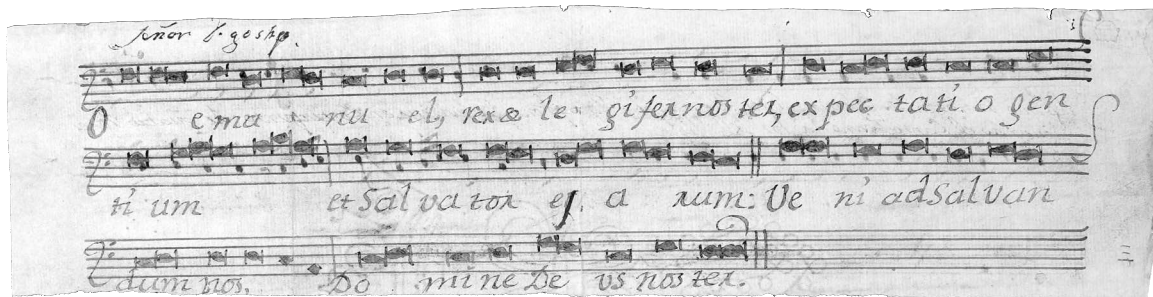 Señor S. gostin.
O ema nu el, rex & le gifer noster, expec tatio gen
ti um et Salvator ejus. a rum: Ve ni ad Salvan
dum nos. Do mine De us noster.